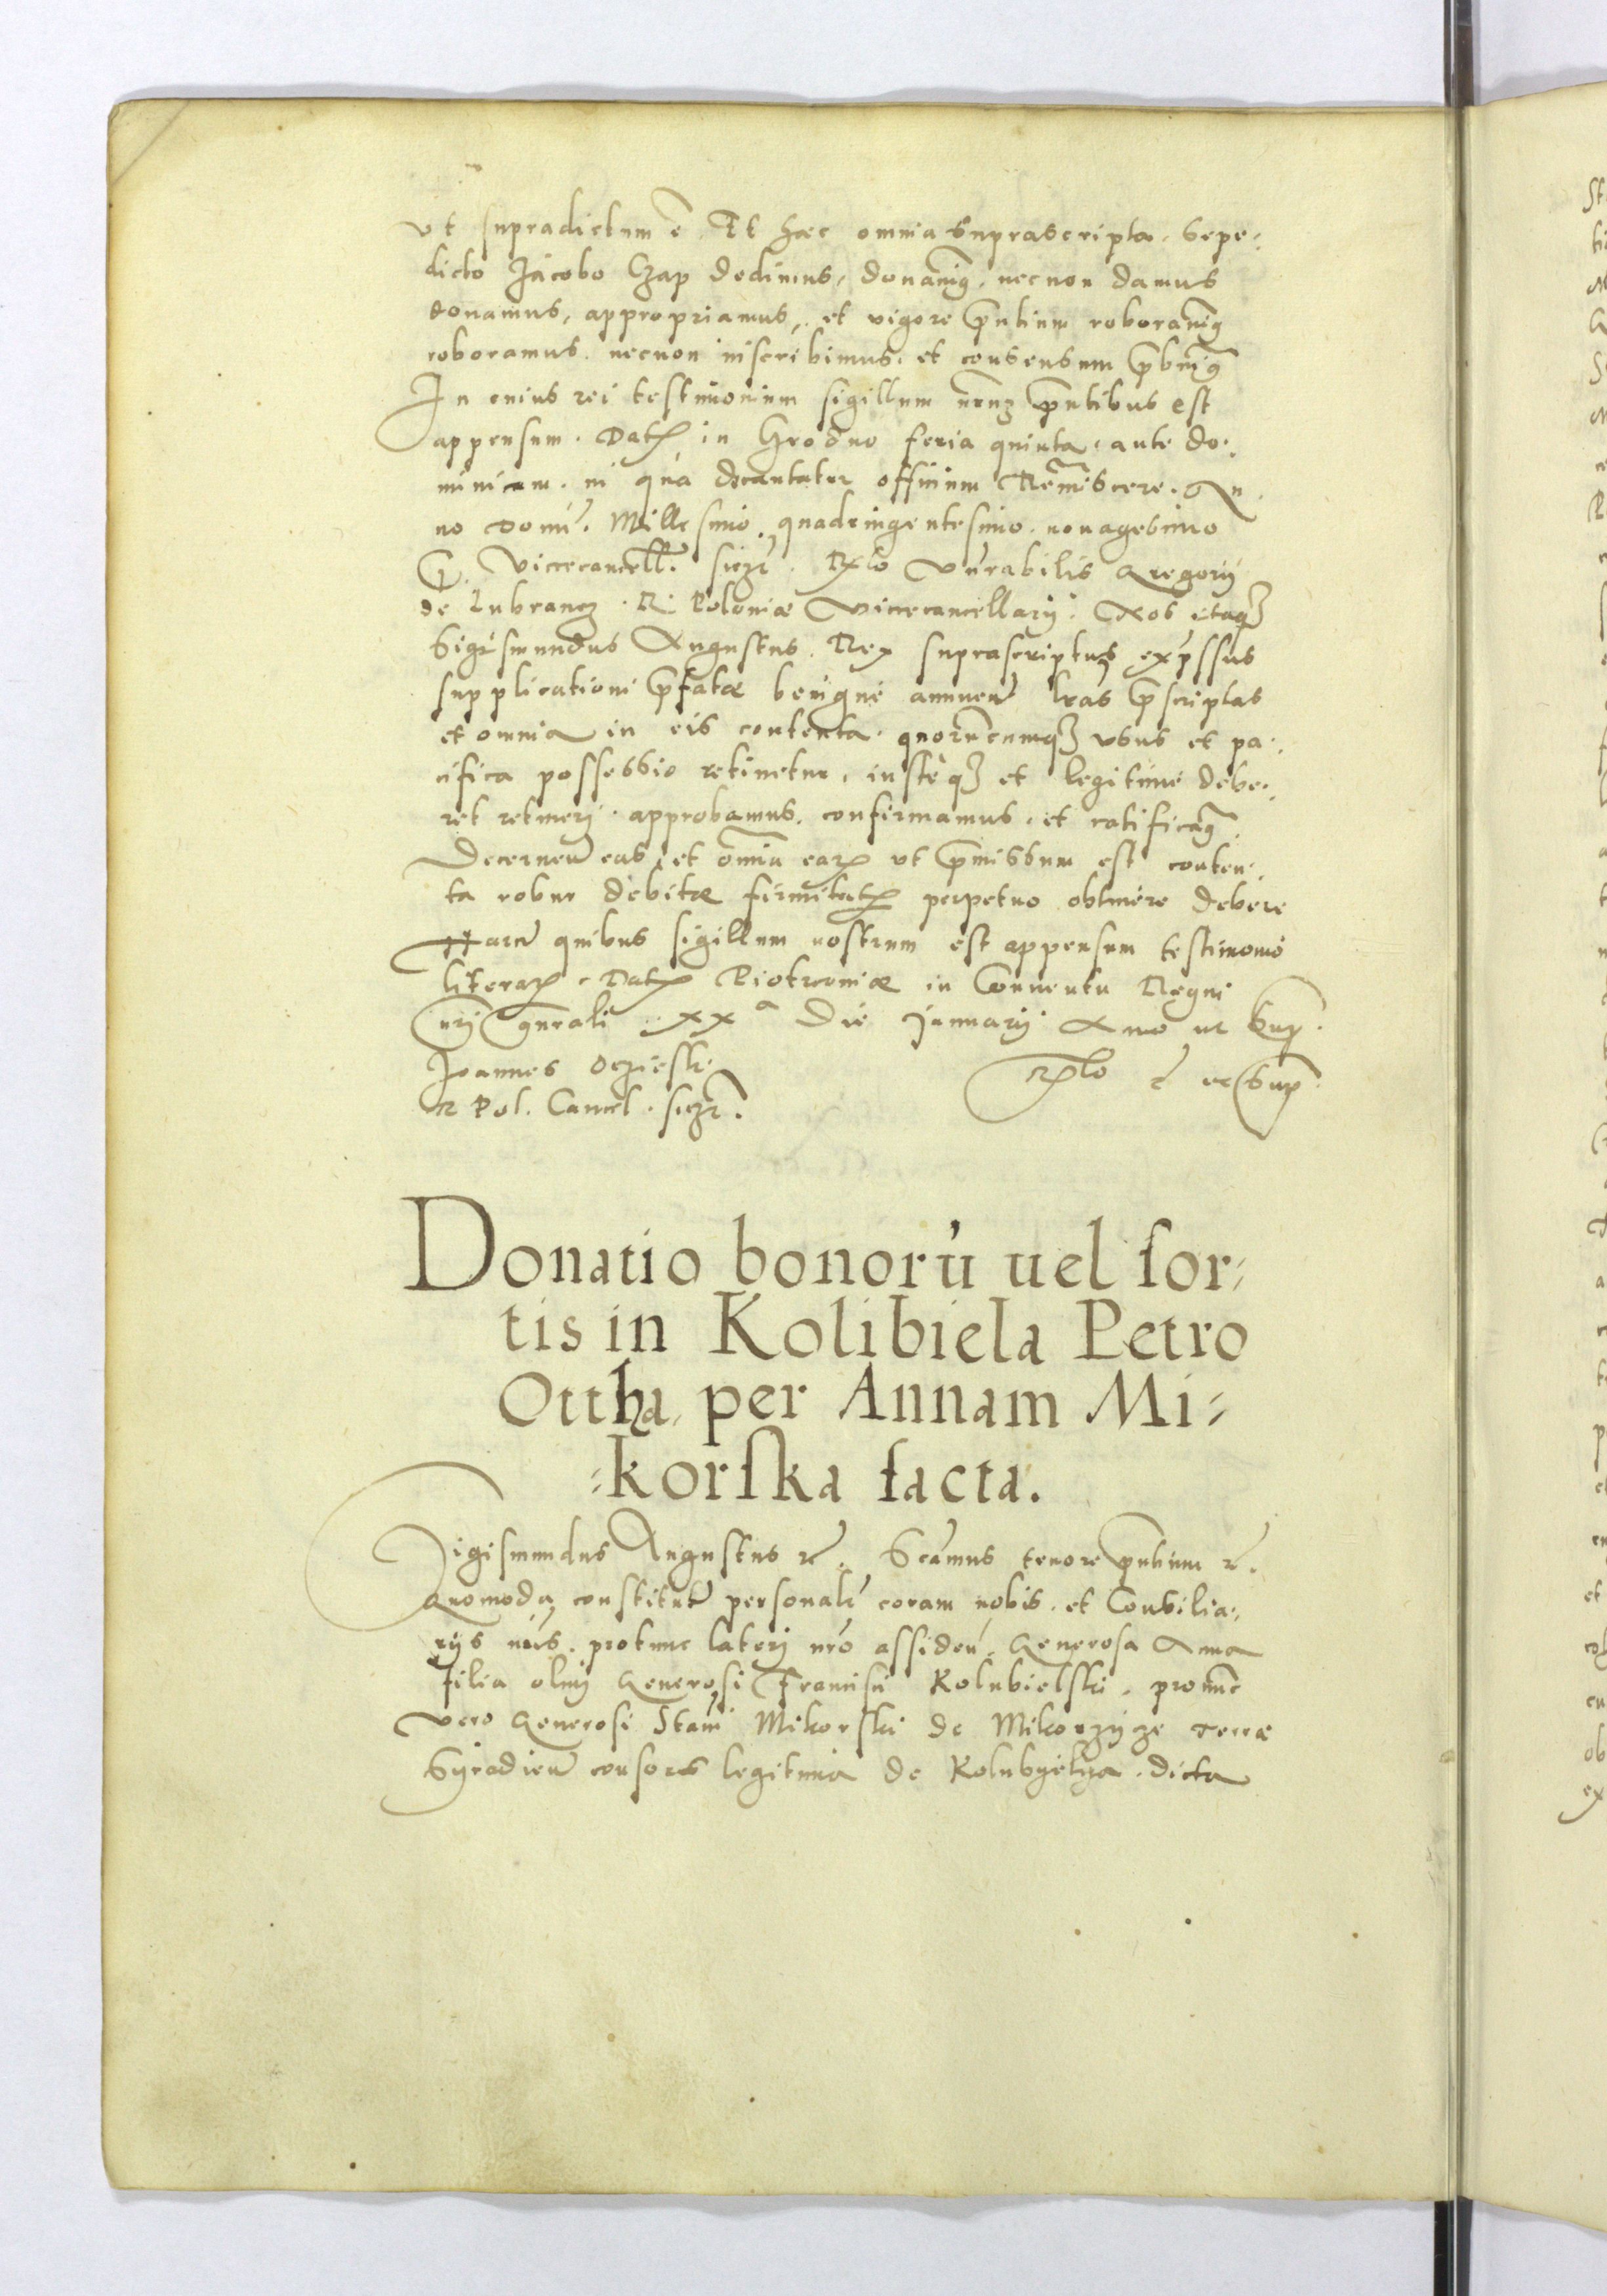 vt supradictum ē. Et haec omnia suprascripta, sepe-
dicto Jacobo Czap dedimus, donavimꝯ, necnon damus
donamus, appropriamus, et vigore pn̄tium roboravimꝯ
roboramus, necnon inscribimus, et consensum p̄bemꝯ
In cuius rei testimonium sigillum nr̄um pn̄tibus est
appensum. Datꝝ in Grodno feria quinta, ante do-
minicam, in qua decantatur officium Reminiscere. An
no Domi. Millesimo, quadringentesimo, nonagesimo
G. Vicecancell. ss̄. Rlo vn̄rabilis Gregorij
de Lubrancz R. Poloniae Vicecancellarij. Nos itaqꝫ
Sigismundus Augustus Rex suprascriptus, exp̄ssus
supplicationi p̄fatae benigne annuen̄ lr̄as p̄scriptas
et omnia in eis contenta, quorūcumqꝫ vsus et pa-
cifica possessio retinetur, iusteqꝫ et legitime debe-
ret retineri, approbamus, confirmamus, et ratificamꝯ
Decernen̄ eas, et omnia earꝝ vt p̄missum est conten-
ta robur debitae firmitatis perpetuo obtinere debere
Harū quibus sigillum nostrum est appensum testimonio
literarꝝ. Datꝝ Piotrcouiae in Conuentu Regni
nr̄i gn̄rali xx a Die Januarij Anno ut sup.
Joannes Oczieski Rlo ē ut sup
R Pol. Cancel. ss̄.
Donatio bonorū uel sor-
tis in Kolibiela Petro
Ottha, per Annam Mi-
-korska facta.
Sigismundus Augustus rc̄. Scāmus tenore pn̄tium rc̄.
Quomodo constitut̄ personalr̄ coram nobis, et Consilia-
rijs nr̄is, protunc lateri nr̄o assideñ, Generosa Anna
filia olim Generosi Francisci Kolubielski, pronunc
vero Generosi Stani Mikorski de Mikorzijze terrae
Syradien̄ consors legitima de Kolubyelya dicta